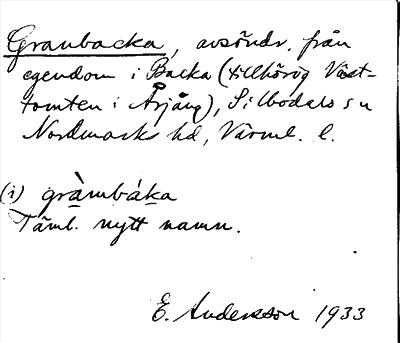 Granbacka, avsöndr. från
egendom i Backa (tillhörig Väst-
tomten i Årjäng), Silbodals sn
Nordmarks hd, Värml. l.
(i) gràmbáka
Täml. nytt namn.
E. Andersson 1933